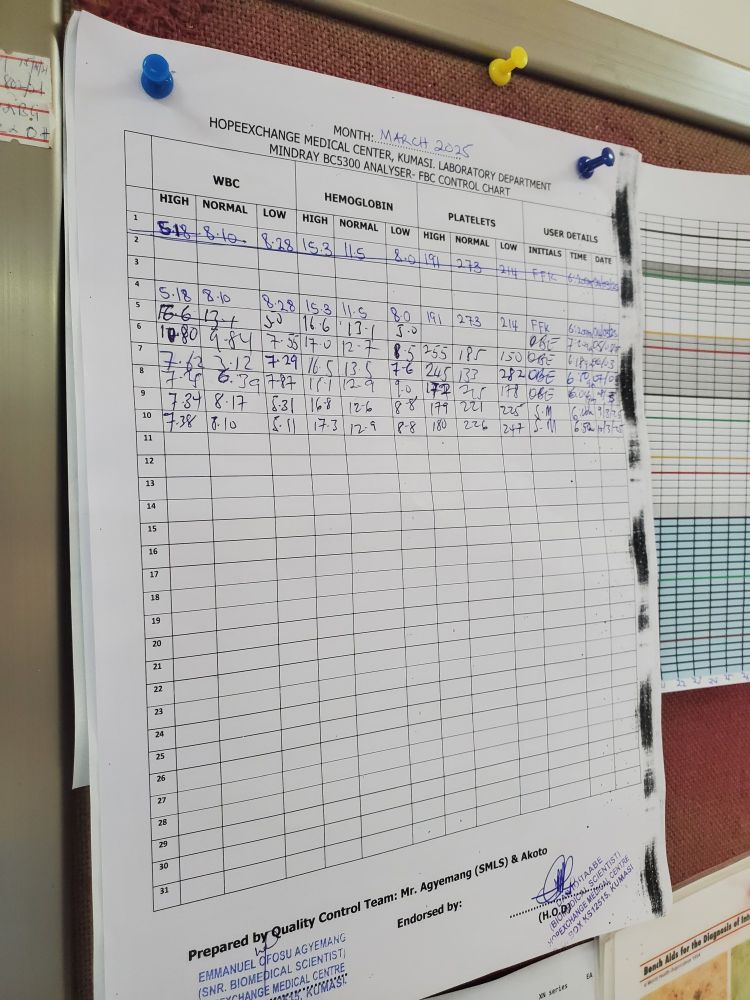 MONTH: MARCH 2025
HOPEEXCHANGE MEDICAL CENTER, KUMASI. LABORATORY DEPARTMENT
MINDRAY BC5300 ANALYSER- FBC CONTROL CHART
WBC HEMOGLOBIN PLATELETS USER DETAILS
HIGH NORMAL LOW HIGH NORMAL LOW HIGH NORMAL LOW INITIALS TIME DATE
1 5.18 8.10 8.28 15.3 11.5 8.0 191 273 214 FFK
2
3
4 5.18 8.10 8.28 15.3 11.5 8.0 191 273 214 FFK
5 16.6 13.1 5.0 16.6 13.1 5.0 OBE
6 10.80 9.84 7.55 17.0 12.7 8.5 255 185 150 OBE
7 7.62 7.29 16.5 13.5 7.6 245 133 282 OBE
8 6.39 7.87 12.9 9.0 178 OBE
9 7.34 8.17 5.31 16.8 12.6 8.8 179 221 225 S.M
10 7.38 8.10 5.11 17.3 12.9 8.8 180 226 247 S.M
11
12
13
14
15
16
17
18
19
20
21
22
23
24
25
26
27
28
29
30
31
Prepared by Quality Control Team: Mr. Agyemang (SMLS) & Akoto
Endorsed by:
(H.O.D)
EMMANUEL OFOSU AGYEMANG
(SNR. BIOMEDICAL SCIENTIST)
HOPEEXCHANGE MEDICAL CENTRE
KUMASI.
(BIOMEDICAL SCIENTIST)
HOPEXCHANGE MEDICAL CENTRE
BOX KS12515, KUMASI
Bench Aids for the Diagnosis of
XN series